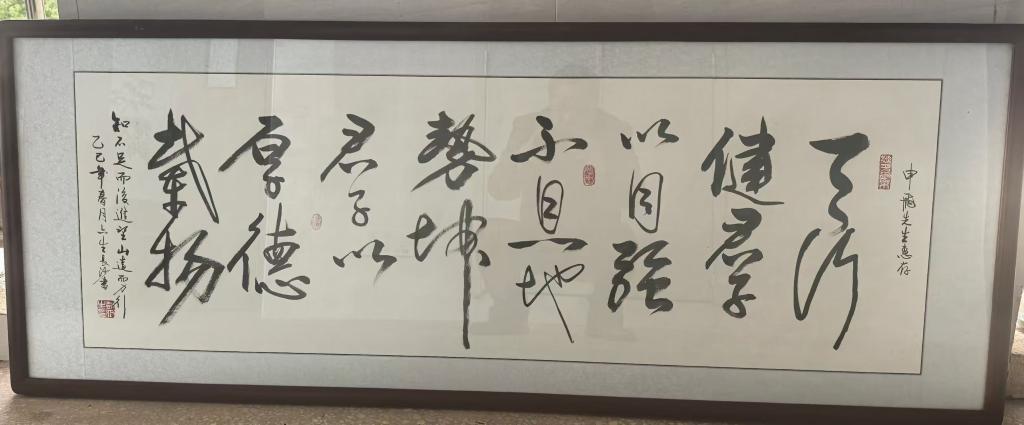 先生惠存
天行
健君子
以自强
不息地
勢坤
君子以
厚德
載物
知不足而後進望山遠而力行
乙巳年春月